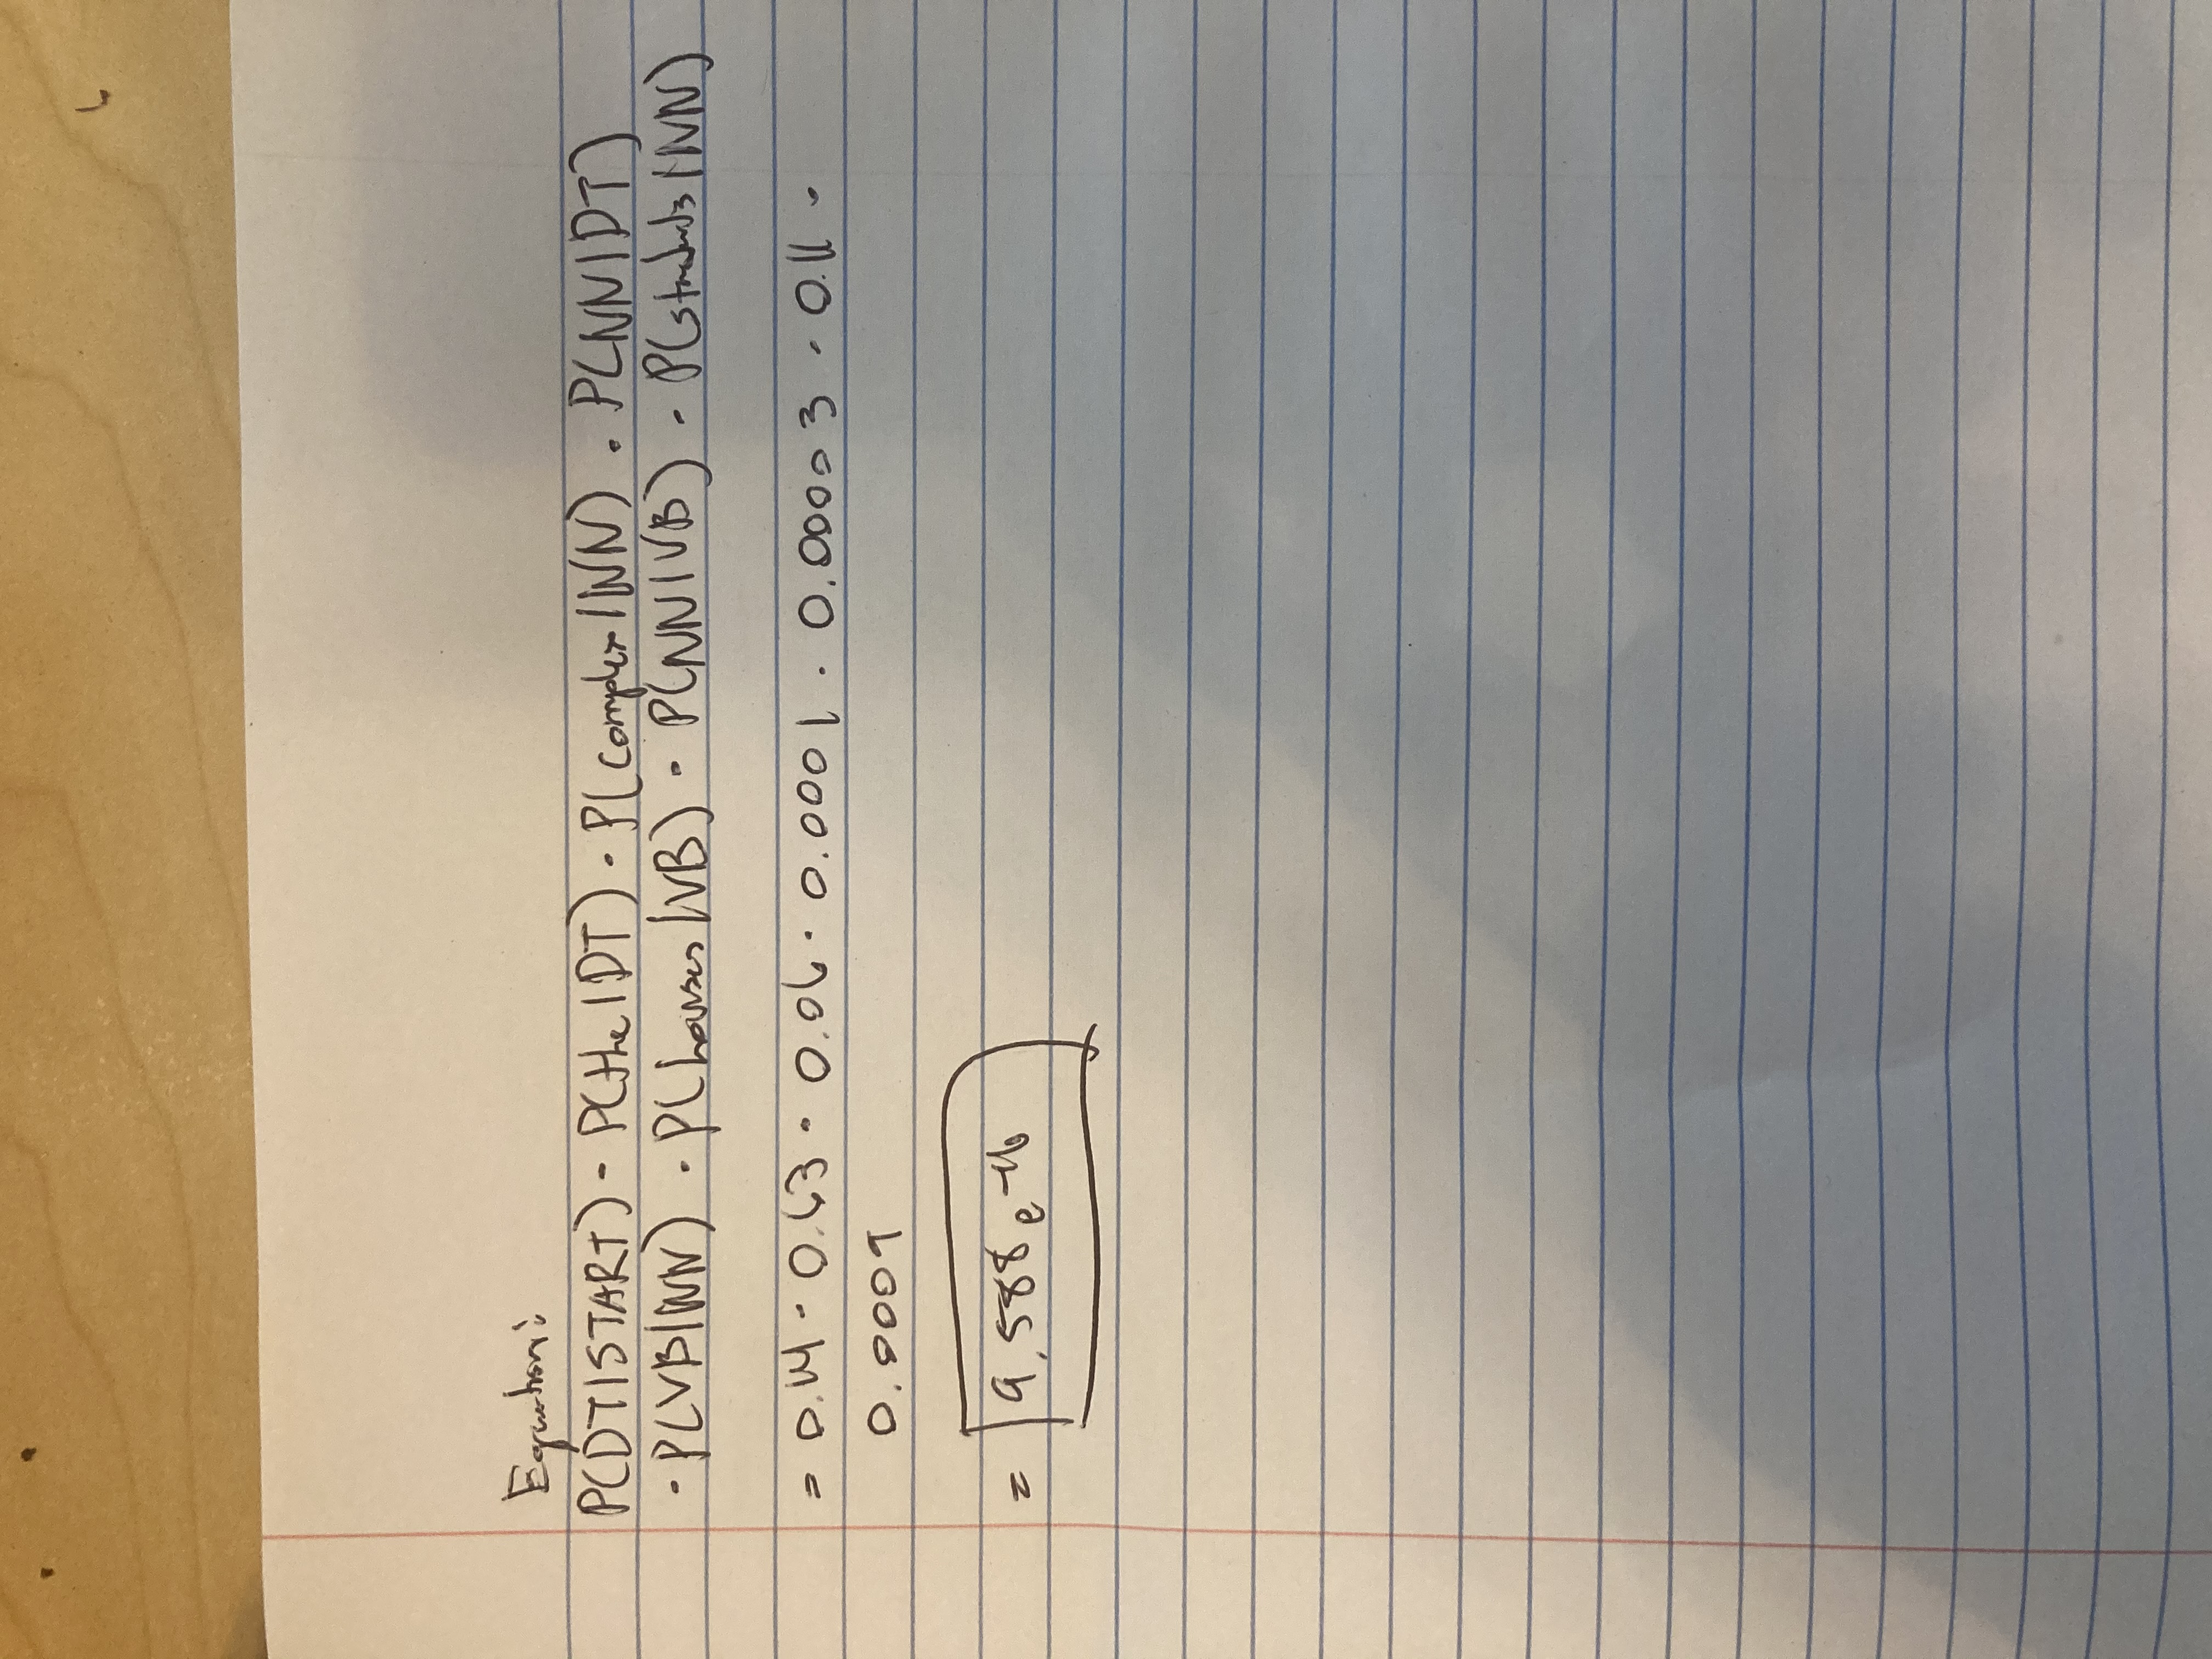 Equation:
P(DT|START) · P(the|DT) · P(complex|NN) · P(NN|DT)
· P(VB|NN) · P(houses|VB) · P(NN|VB) · P(students|NN)
= 0.14 · 0.63 · 0.06 · 0.0001 · 0.00003 · 0.11 ·
0.0009
= 9.588e-16